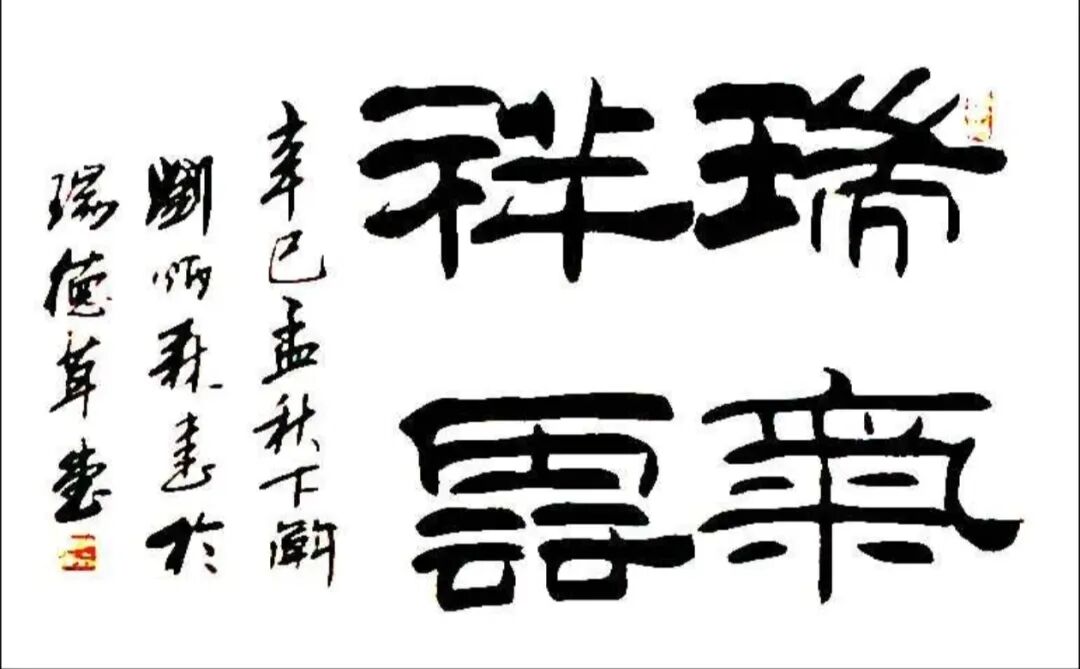 瑞氣
祥雲
辛巳孟秋下澣
劉炳森書於
瑞德草堂